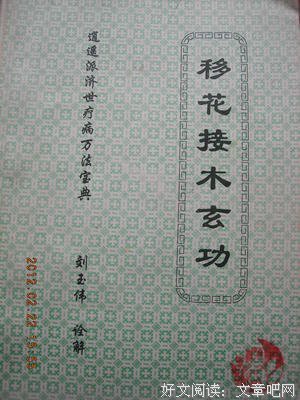 移花接木玄功
逍遥派济世疗病万法宝典
刘玉伟 诠解
2012.02.22
好文阅读：文章吧网